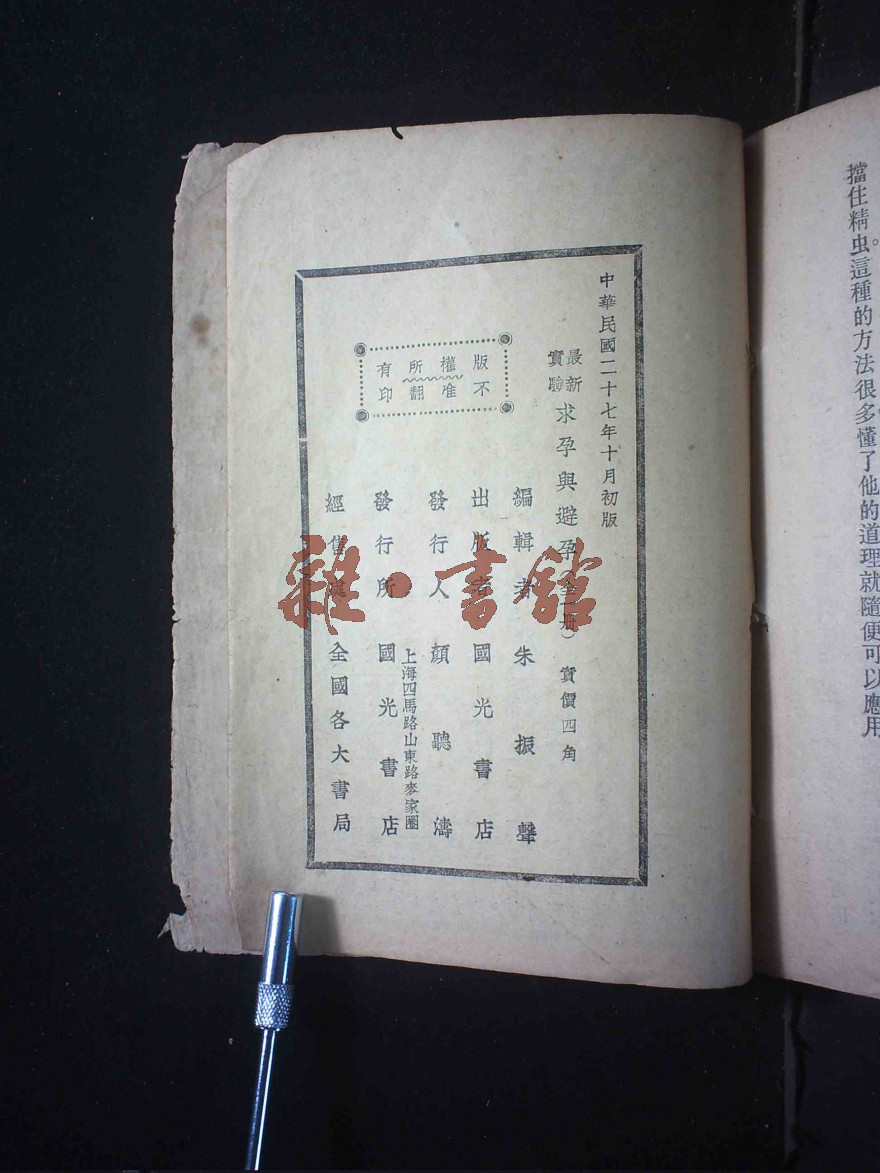 擋住精虫。這種的方法很多懂了他的道理就隨便可以應用
中華民國二十七年十月初版
最新實驗求孕與避孕（全一册）實價四角
版權所有
不准翻印
編輯者朱振聲
出版者國光書店
發行人顏聽濤
上海四馬路山東路麥家圈
發行所國光書店
經售處全國各大書局
雜·書館